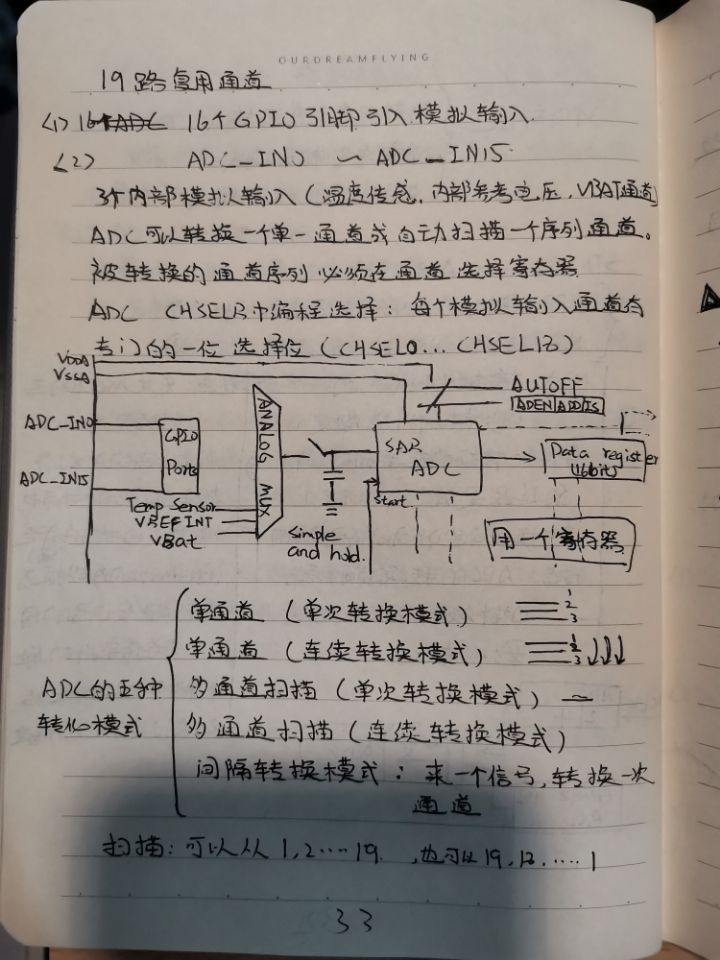 OURDREAMFLYING
19路复用通道
<1> 16个ADC 16个GPIO引脚引入模拟输入.
<2> ADC_IN0 ~ ADC_IN15.
3个内部模拟输入(温度传感.内部参考电压.VBAT通道)
ADC可以转换一个单一通道或自动扫描一个序列通道。
被转换的通道序列必须在通道选择寄存器
ADC CHSELR中编程选择:每个模拟输入通道有
专门的一位选择位(CHSEL0...CHSEL18)
VDDA
VSSA
AUTOFF
ADEN/ADDIS
ADC_IN0
GPIO
Ports
ANALOG MUX
SAR
ADC
start
Data register
16bits
ADC_IN15
Temp Sensor
VREFINT
VBat
simple
and hold.
用一个寄存器
ADC的五种
转化模式
单通道(单次转换模式) 1 2 3
单通道(连续转换模式) 1 2 3
多通道扫描(单次转换模式)
多通道扫描(连续转换模式)
间隔转换模式:来一个信号,转换一次
通道
扫描:可以从1,2....19. ,也可以19,18.....1
33